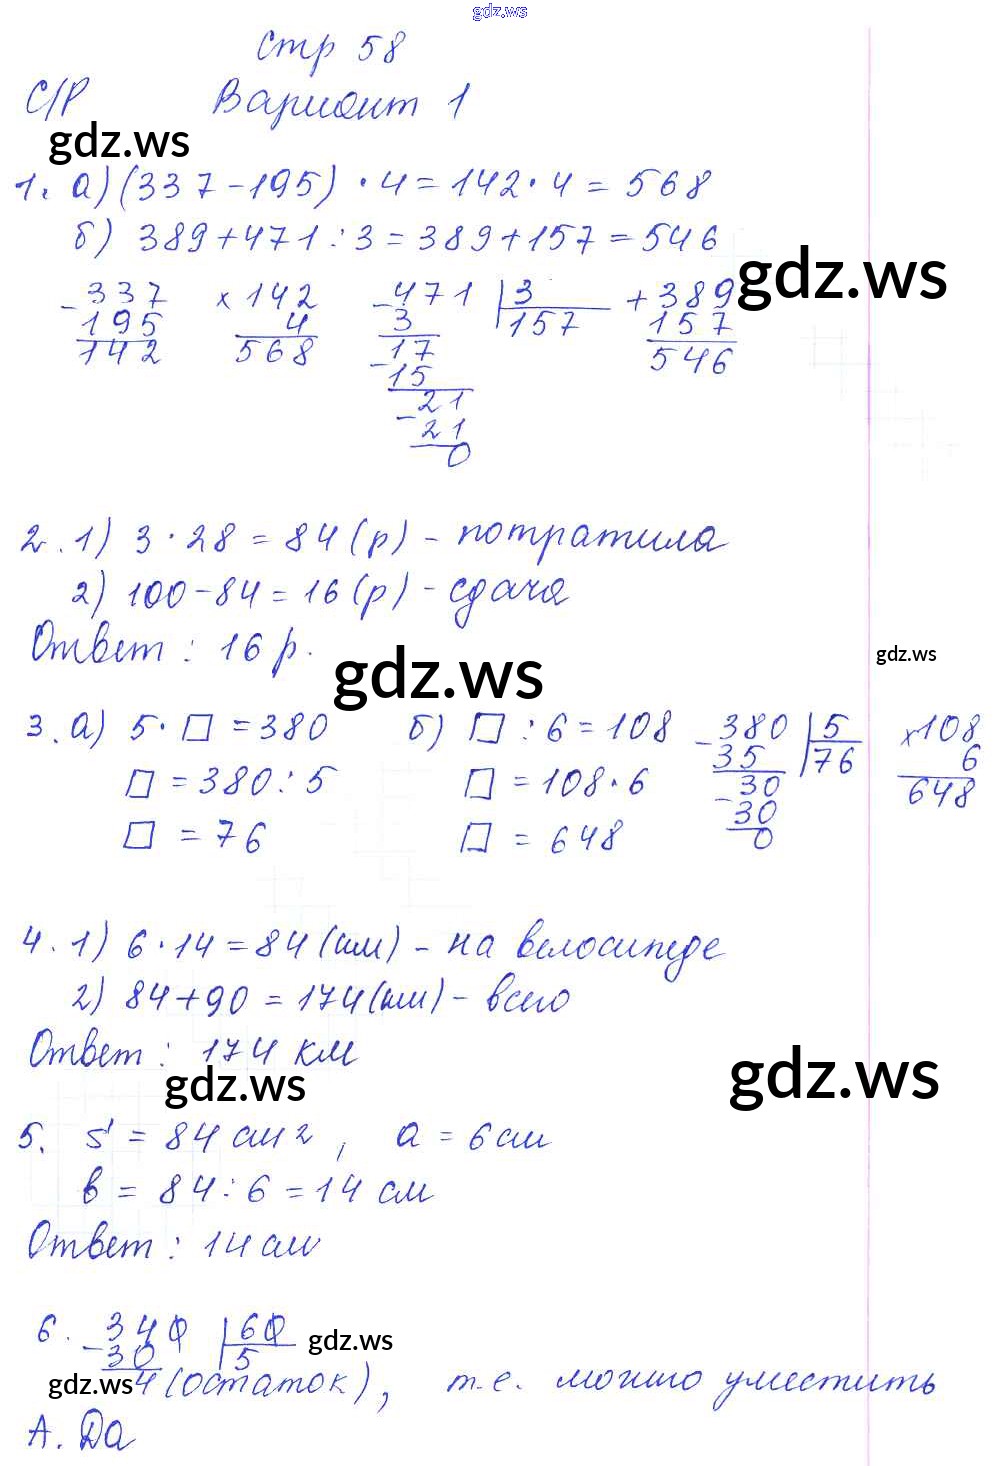 gdz.ws
Стр 58
С/Р Вариант 1
gdz.ws
1. а) (337-195) · 4 = 142 · 4 = 568
б) 389+471:3 = 389+157 = 546
gdz.ws
- 337 x 142 - 471 | 3 + 389
195 4 3 157 157
142 568 17 546
- 15
21
- 21
0
2. 1) 3 · 28 = 84 (р) - потратила
2) 100-84 = 16 (р) - сдача
Ответ: 16 р.
gdz.ws gdz.ws
3. а) 5 · □ = 380 б) □ : 6 = 108 - 380 | 5 x 108
□ = 380 : 5 □ = 108 · 6 35 76 6
□ = 76 □ = 648 - 30 648
30
0
4. 1) 6 · 14 = 84 (км) - на велосипеде
2) 84+90 = 174 (км) - всего
Ответ: 174 км
gdz.ws gdz.ws
5. S = 84 см2, а = 6 см
в = 84 : 6 = 14 см
Ответ: 14 см
6. - 340 | 60 gdz.ws
30 5
gdz.ws 4 (остаток), т.е. можно уместить
А. Да